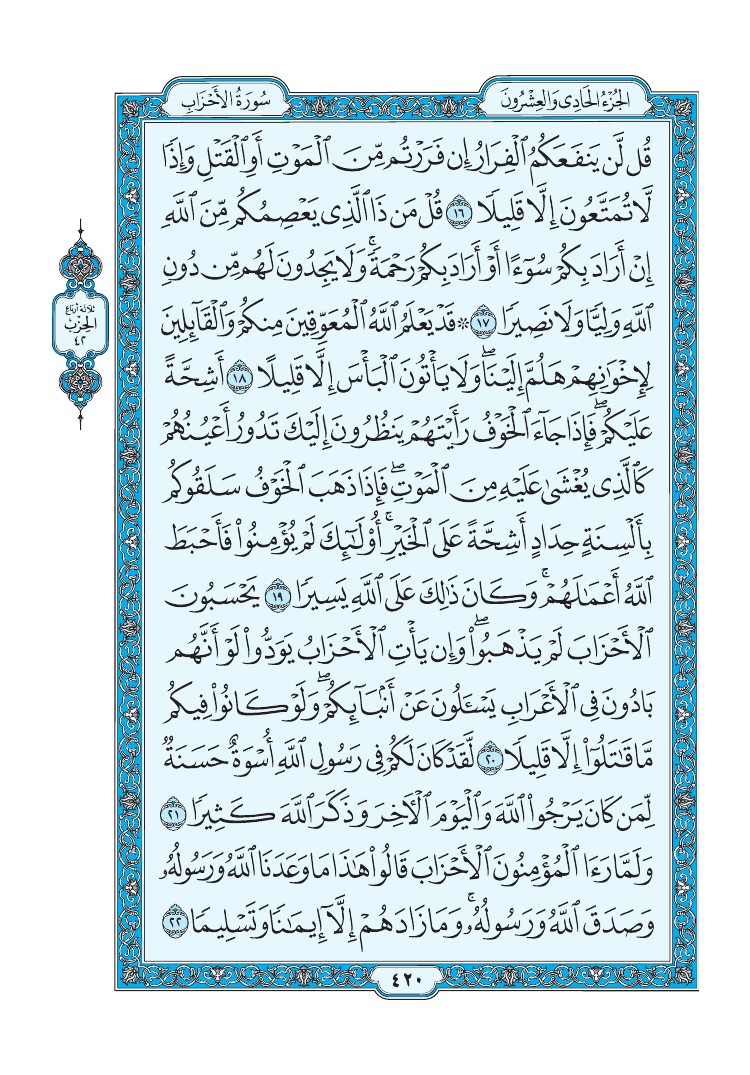 الجُزْءُ الحَادِي وَالعِشْرُونَ
سُورَةُ الأَحْزَابِ
قُل لَّن يَنفَعَكُمُ ٱلْفِرَارُ إِن فَرَرْتُم مِّنَ ٱلْمَوْتِ أَوِ ٱلْقَتْلِ وَإِذًا
لَّا تُمَتَّعُونَ إِلَّا قَلِيلًا ١٦ قُلْ مَن ذَا ٱلَّذِى يَعْصِمُكُم مِّنَ ٱللَّهِ
إِنْ أَرَادَ بِكُمْ سُوٓءًا أَوْ أَرَادَ بِكُمْ رَحْمَةً ۚ وَلَا يَجِدُونَ لَهُم مِّن دُونِ
ٱللَّهِ وَلِيًّا وَلَا نَصِيرًا ١٧ ۞ قَدْ يَعْلَمُ ٱللَّهُ ٱلْمُعَوِّقِينَ مِنكُمْ وَٱلْقَآئِلِينَ
لِإِخْوَٰنِهِمْ هَلُمَّ إِلَيْنَا ۖ وَلَا يَأْتُونَ ٱلْبَأْسَ إِلَّا قَلِيلًا ١٨ أَشِحَّةً
عَلَيْكُمْ ۖ فَإِذَا جَآءَ ٱلْخَوْفُ رَأَيْتَهُمْ يَنظُرُونَ إِلَيْكَ تَدُورُ أَعْيُنُهُمْ
كَٱلَّذِى يُغْشَىٰ عَلَيْهِ مِنَ ٱلْمَوْتِ ۖ فَإِذَا ذَهَبَ ٱلْخَوْفُ سَلَقُوكُم
بِأَلْسِنَةٍ حِدَادٍ أَشِحَّةً عَلَى ٱلْخَيْرِ ۚ أُو۟لَٰٓئِكَ لَمْ يُؤْمِنُوا۟ فَأَحْبَطَ
ٱللَّهُ أَعْمَٰلَهُمْ ۚ وَكَانَ ذَٰلِكَ عَلَى ٱللَّهِ يَسِيرًا ١٩ يَحْسَبُونَ
ٱلْأَحْزَابَ لَمْ يَذْهَبُوا۟ ۖ وَإِن يَأْتِ ٱلْأَحْزَابُ يَوَدُّوا۟ لَوْ أَنَّهُم
بَادُونَ فِى ٱلْأَعْرَابِ يَسْـَٔلُونَ عَنْ أَنۢبَآئِكُمْ ۖ وَلَوْ كَانُوا۟ فِيكُم
مَّا قَٰتَلُوٓا۟ إِلَّا قَلِيلًا ٢٠ لَّقَدْ كَانَ لَكُمْ فِى رَسُولِ ٱللَّهِ أُسْوَةٌ حَسَنَةٌ
لِّمَن كَانَ يَرْجُوا۟ ٱللَّهَ وَٱلْيَوْمَ ٱلْءَاخِرَ وَذَكَرَ ٱللَّهَ كَثِيرًا ٢١
وَلَمَّا رَءَا ٱلْمُؤْمِنُونَ ٱلْأَحْزَابَ قَالُوا۟ هَٰذَا مَا وَعَدَنَا ٱللَّهُ وَرَسُولُهُۥ
وَصَدَقَ ٱللَّهُ وَرَسُولُهُۥ ۚ وَمَا زَادَهُمْ إِلَّآ إِيمَٰنًا وَتَسْلِيمًا ٢٢
ثلاثة أرباع
الحزب
٤٢
٤٢٠